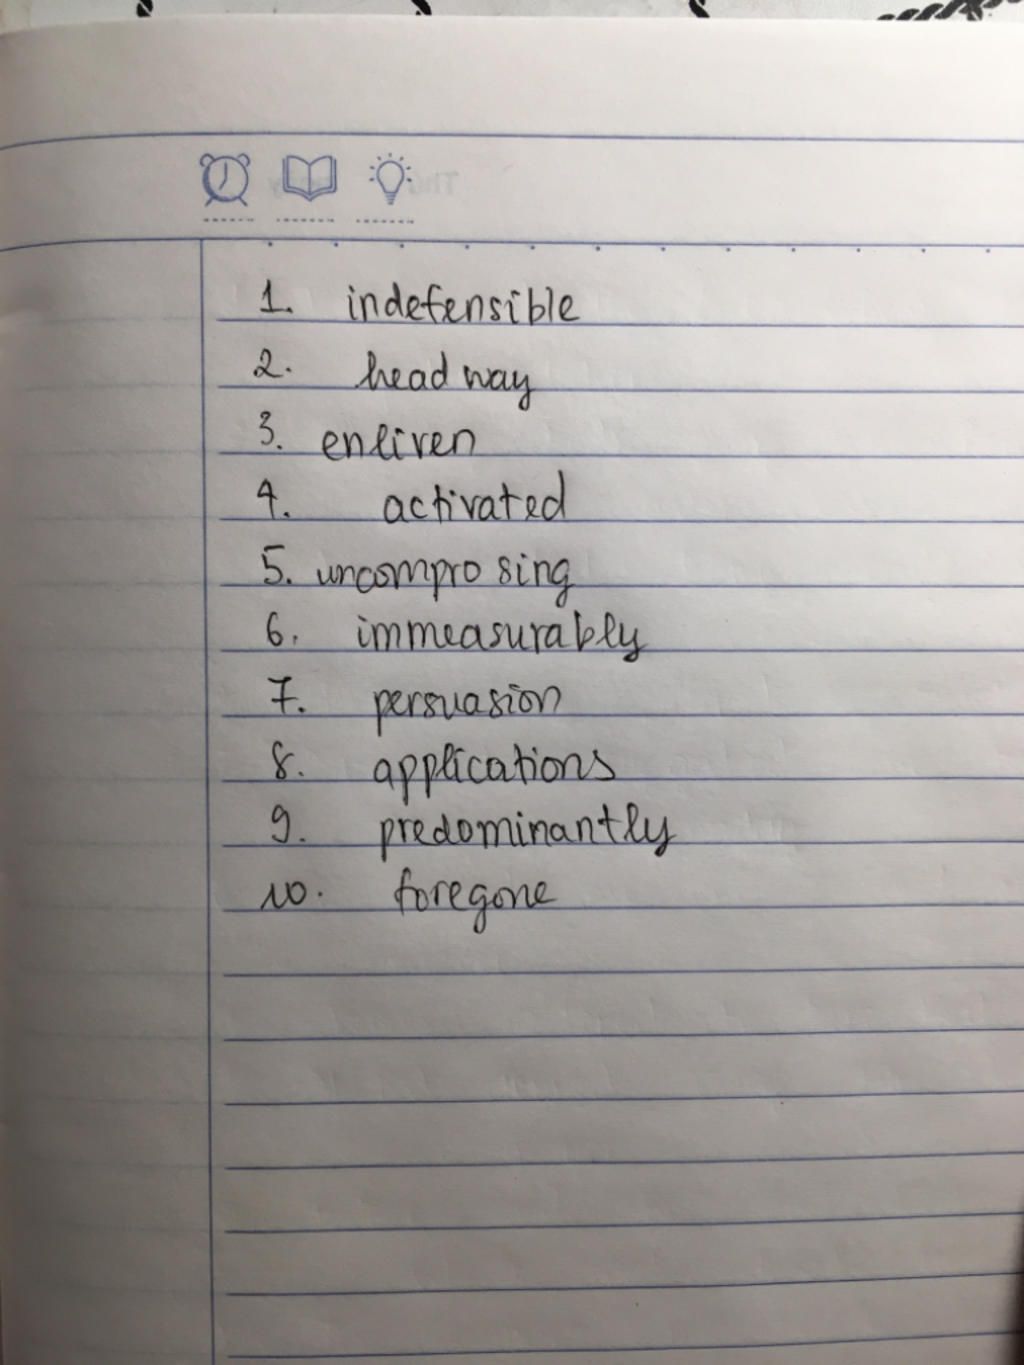 1. indefensible
2. headway
3. enliven
4. activated
5. uncomprosing
6. immeasurably
7. persuasion
8. applications
9. predominantly
10. foregone